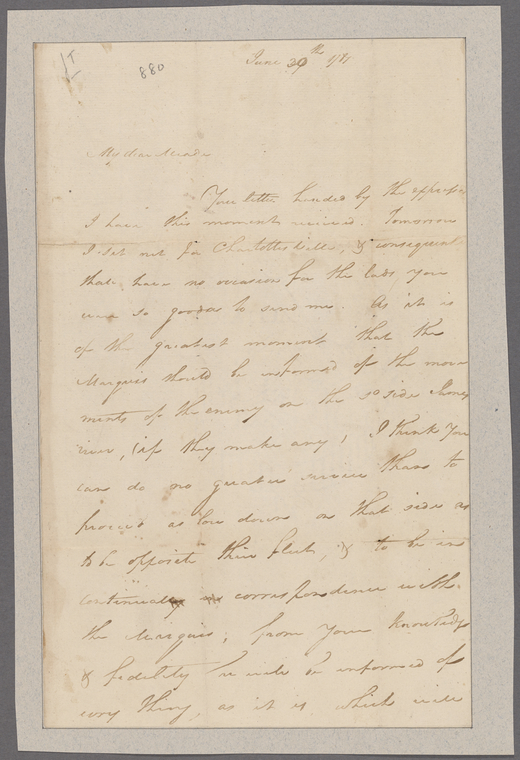 880
June 29th 1781
My dear
Your letter handed by the express
I have this moment received. Tomorrow
I set out for Charlottesville, & consequent
that have no occasion for the lads you
were so good as to send me. As it is
of the greatest moment that the
Marquis should be informed of the move
ments of the enemy on the So side
river, (if they make any) I think you
can do no greater service than to
proceed as low down on that side as
to be opposite their fleet, & to be in a
continual correspondence with
the Marquis; from your knowledge
& fidelity he will be informed of
every thing, as it is which will